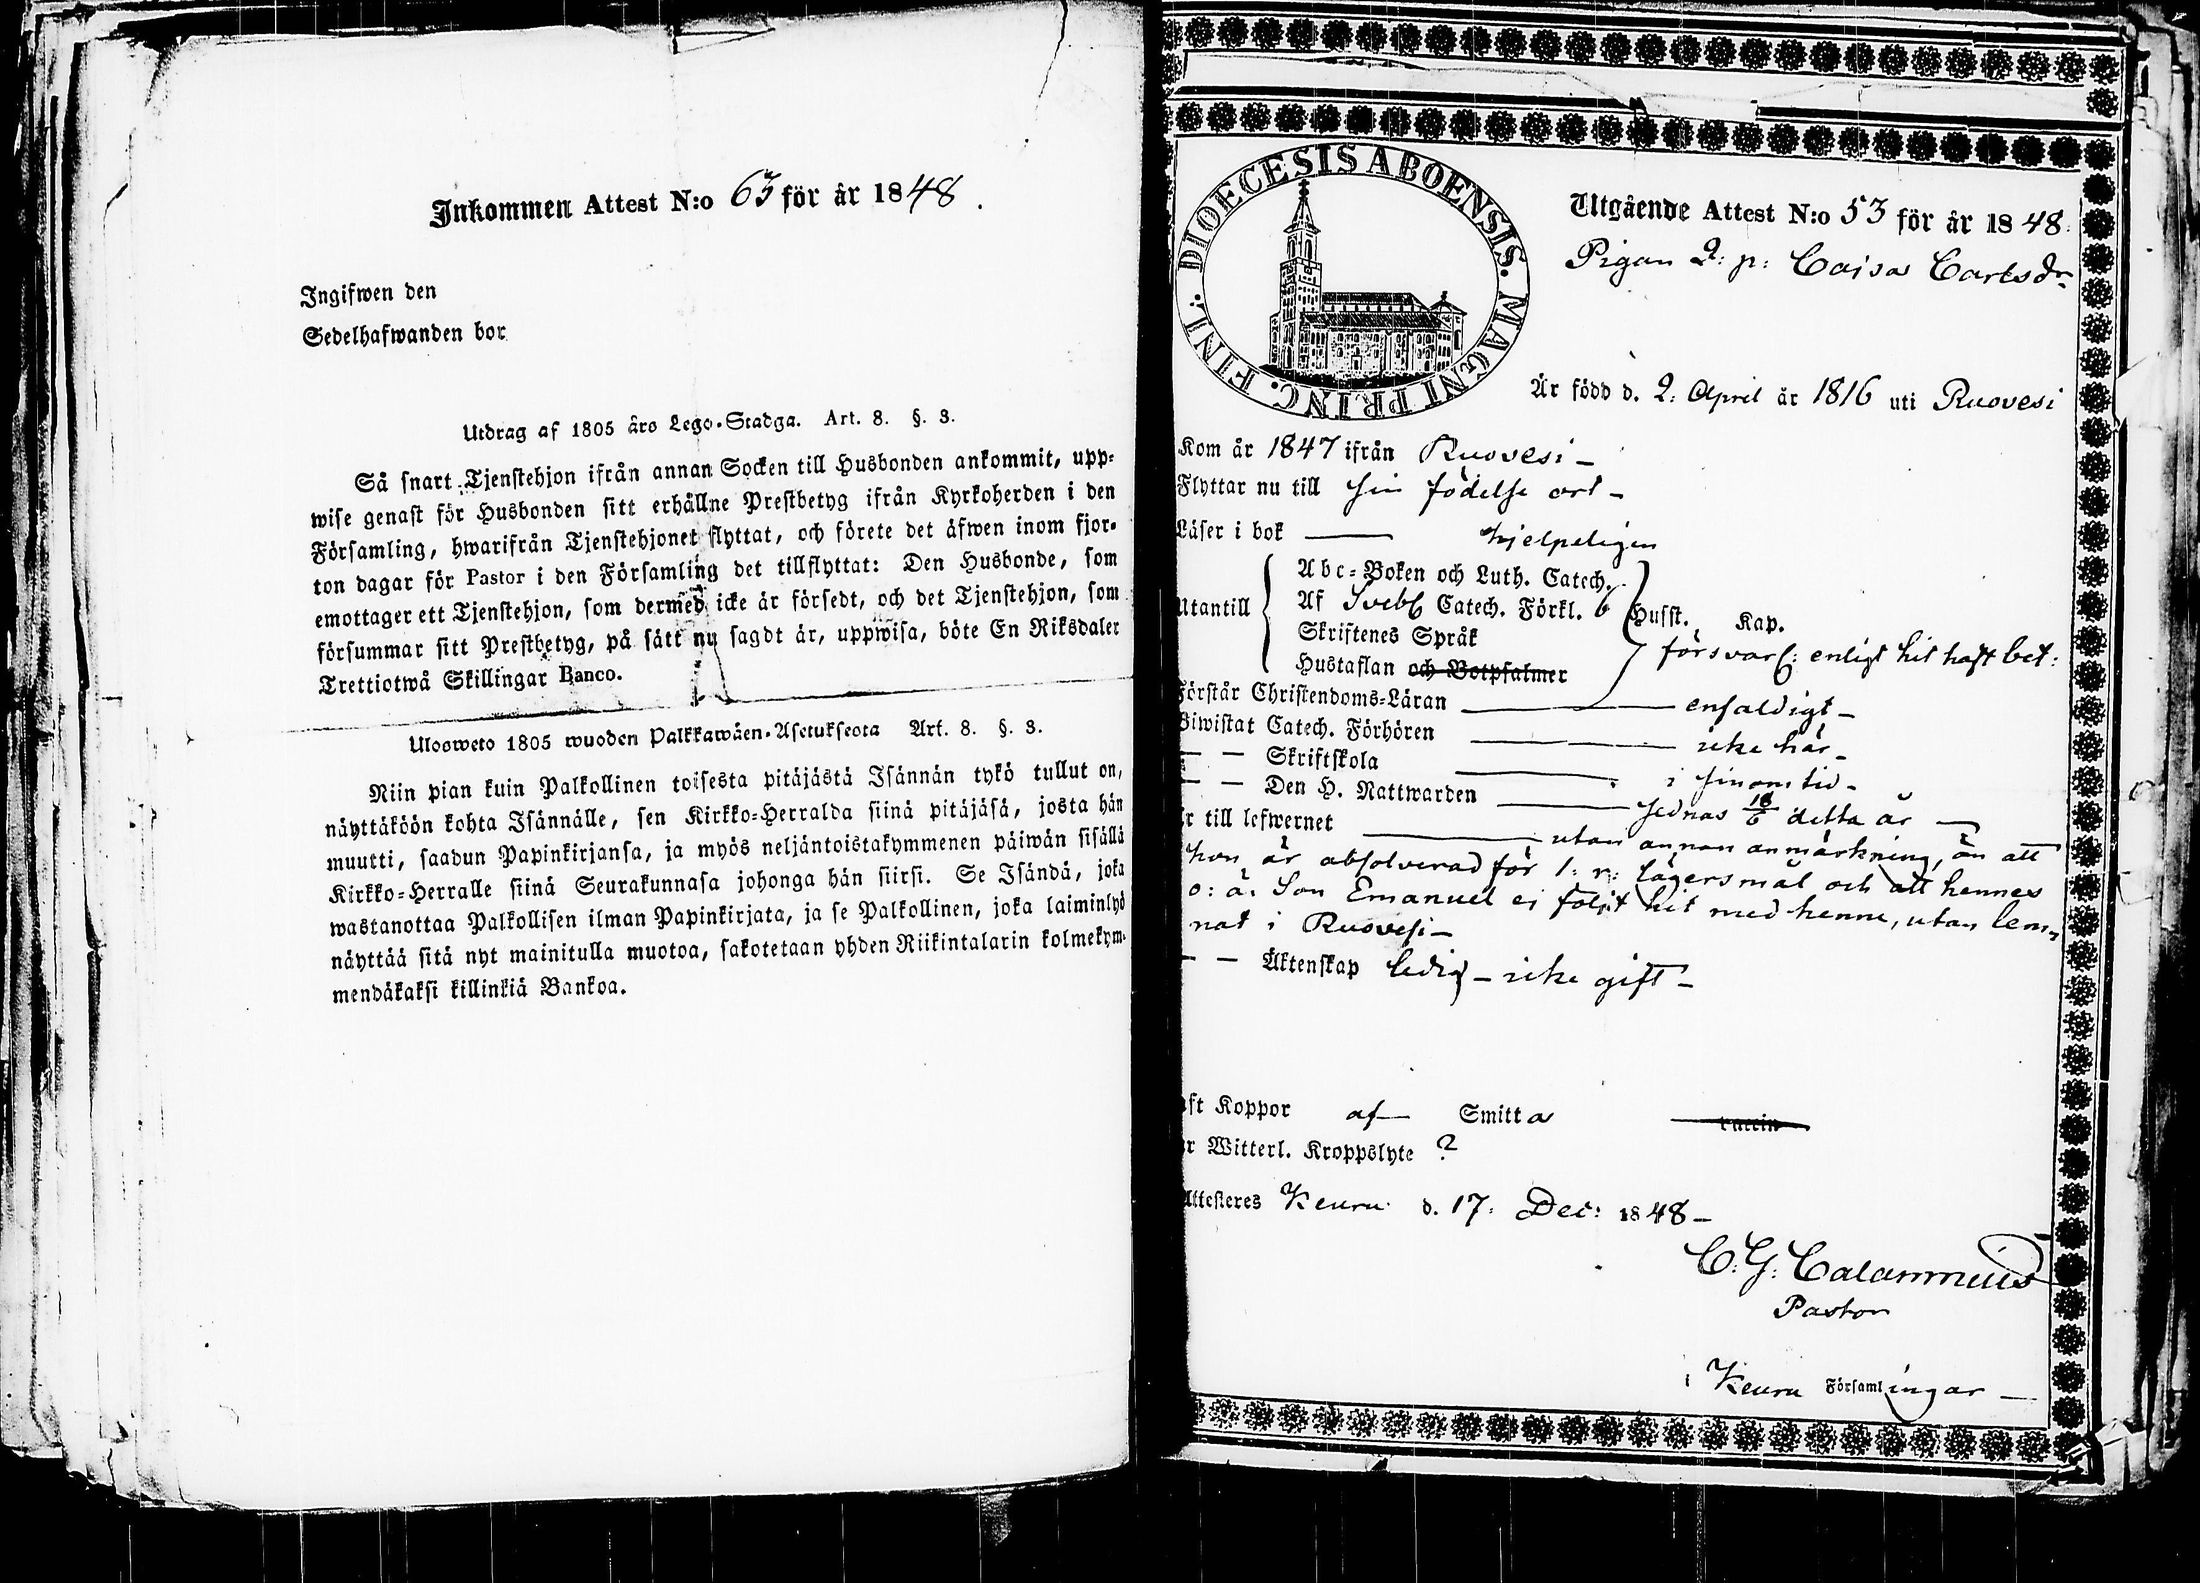 Inkommen Attest N:o 63 för år 1848.
Ingifwen den
Sedelhafwanden bor
Utdrag af 1805 års Lego-Stadga. Art. 8. §. 3.
Så snart Tjenstehjon ifrån annan Socken till Husbonden ankommit, upp-
wise genast för Husbonden sitt erhållne Prestbetyg ifrån Kyrkoherden i den
Församling, hwarifrån Tjenstehjonet flyttat, och förete det äfwen inom fjor-
ton dagar för Pastor i den Församling det tillflyttat: Den Husbonde, som
emottager ett Tjenstehjon, som dermed icke är försedt, och det Tjenstehjon, som
försummar sitt Prestbetyg, på sätt nu sagdt är, uppwisa, böte En Riksdaler
Trettiotwå Skillingar Banco.
Ulosweto 1805 wuoden Palkkawäen-Asetuksesta Art. 8. §. 3.
Niin pian kuin Palkollinen toisesta pitäjästä Isännän tykö tullut on,
näyttäköön kohta Isännälle, sen Kirkko-Herralda siinä pitäjäsä, josta hän
muutti, saadun Papinkirjansa, ja myös neljäntoistakymmenen päiwän sisällä
Kirkko-Herralle siinä Seurakunnasa johonga hän siirsi. Se Isändä, joka
wastanottaa Palkollisen ilman Papinkirjata, ja se Palkollinen, joka laiminlyö
näyttää sitä nyt mainitulla muotoa, sakotetaan yhden Riikintalarin kolmekym-
mendäkaksi killinkiä Bankoa.
DIOECESIS ABOENSIS. MAGNI PRINC. FINL.
Utgående Attest N:o 53 för år 1848.
Pigan Q: p: Caisa Carlsdr
Är född d. 2: April år 1816 uti Ruovesi
Kom år 1847 ifrån Ruovesi –
Flyttar nu till sin födelse ort –
Läser i bok — hjelpeligen
Utantill
Abc-Boken och Luth. Catech.
Af Svebs Catech. Förkl. Husst. Kap.
Skriftenes Språk
försvarl: enligt hit haft bet:
Hustaflan och Botpsalmer
Förstår Christendoms-Läran — enfaldigt –
Biwistat Catech. Förhören — icke här –
– – Skriftskola — i sinom tid –
– – Den H. Nattwarden — sednas 18/6 detta år —
r till lefwernet — utan annan anmärkning, än att
hon är absolverad för 1: r: lägersmål och att hennes
o: ä: Son Emanuel ei följt hit med henne, utan lem-
nat i Ruovesi –
– – Äktenskap ledig – icke gift –
aft Koppor af Smitta vaccin
r Witterl. Kroppslyte ?
Attesteres Keuru d. 17: Dec: 1848 –
C. G. Calamnius
Pastor
i Keuru Församlingar —